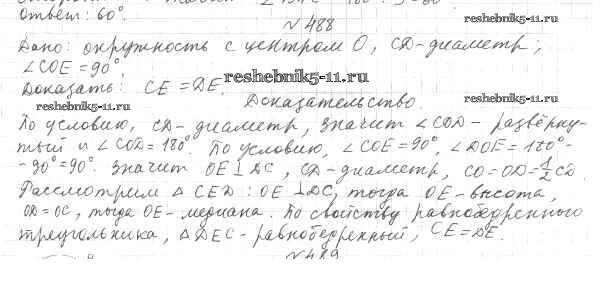 Ответ: 60°.
№ 488
reshebnik5-11.ru
Дано: окружность с центром O, CD-диаметр;
∠COE = 90°.
reshebnik5-11.ru
Доказать: CE = DE.
reshebnik5-11.ru
Доказательство.
reshebnik5-11.ru
По условию, CD-диаметр, значит ∠COD - развёрну-
тый и ∠COD = 180°. По условию, ∠COE = 90°, ∠DOE = 180° -
- 90° = 90°. Значит OE ⊥ DC, CD-диаметр, CO = OD = 1/2 CD.
Рассмотрим △ CED: OE ⊥ DC, тогда OE - высота,
OD = OC, тогда OE - медиана. По свойству равнобедренного
треугольника, △ DEC - равнобедренный, CE = DE.
№ 489